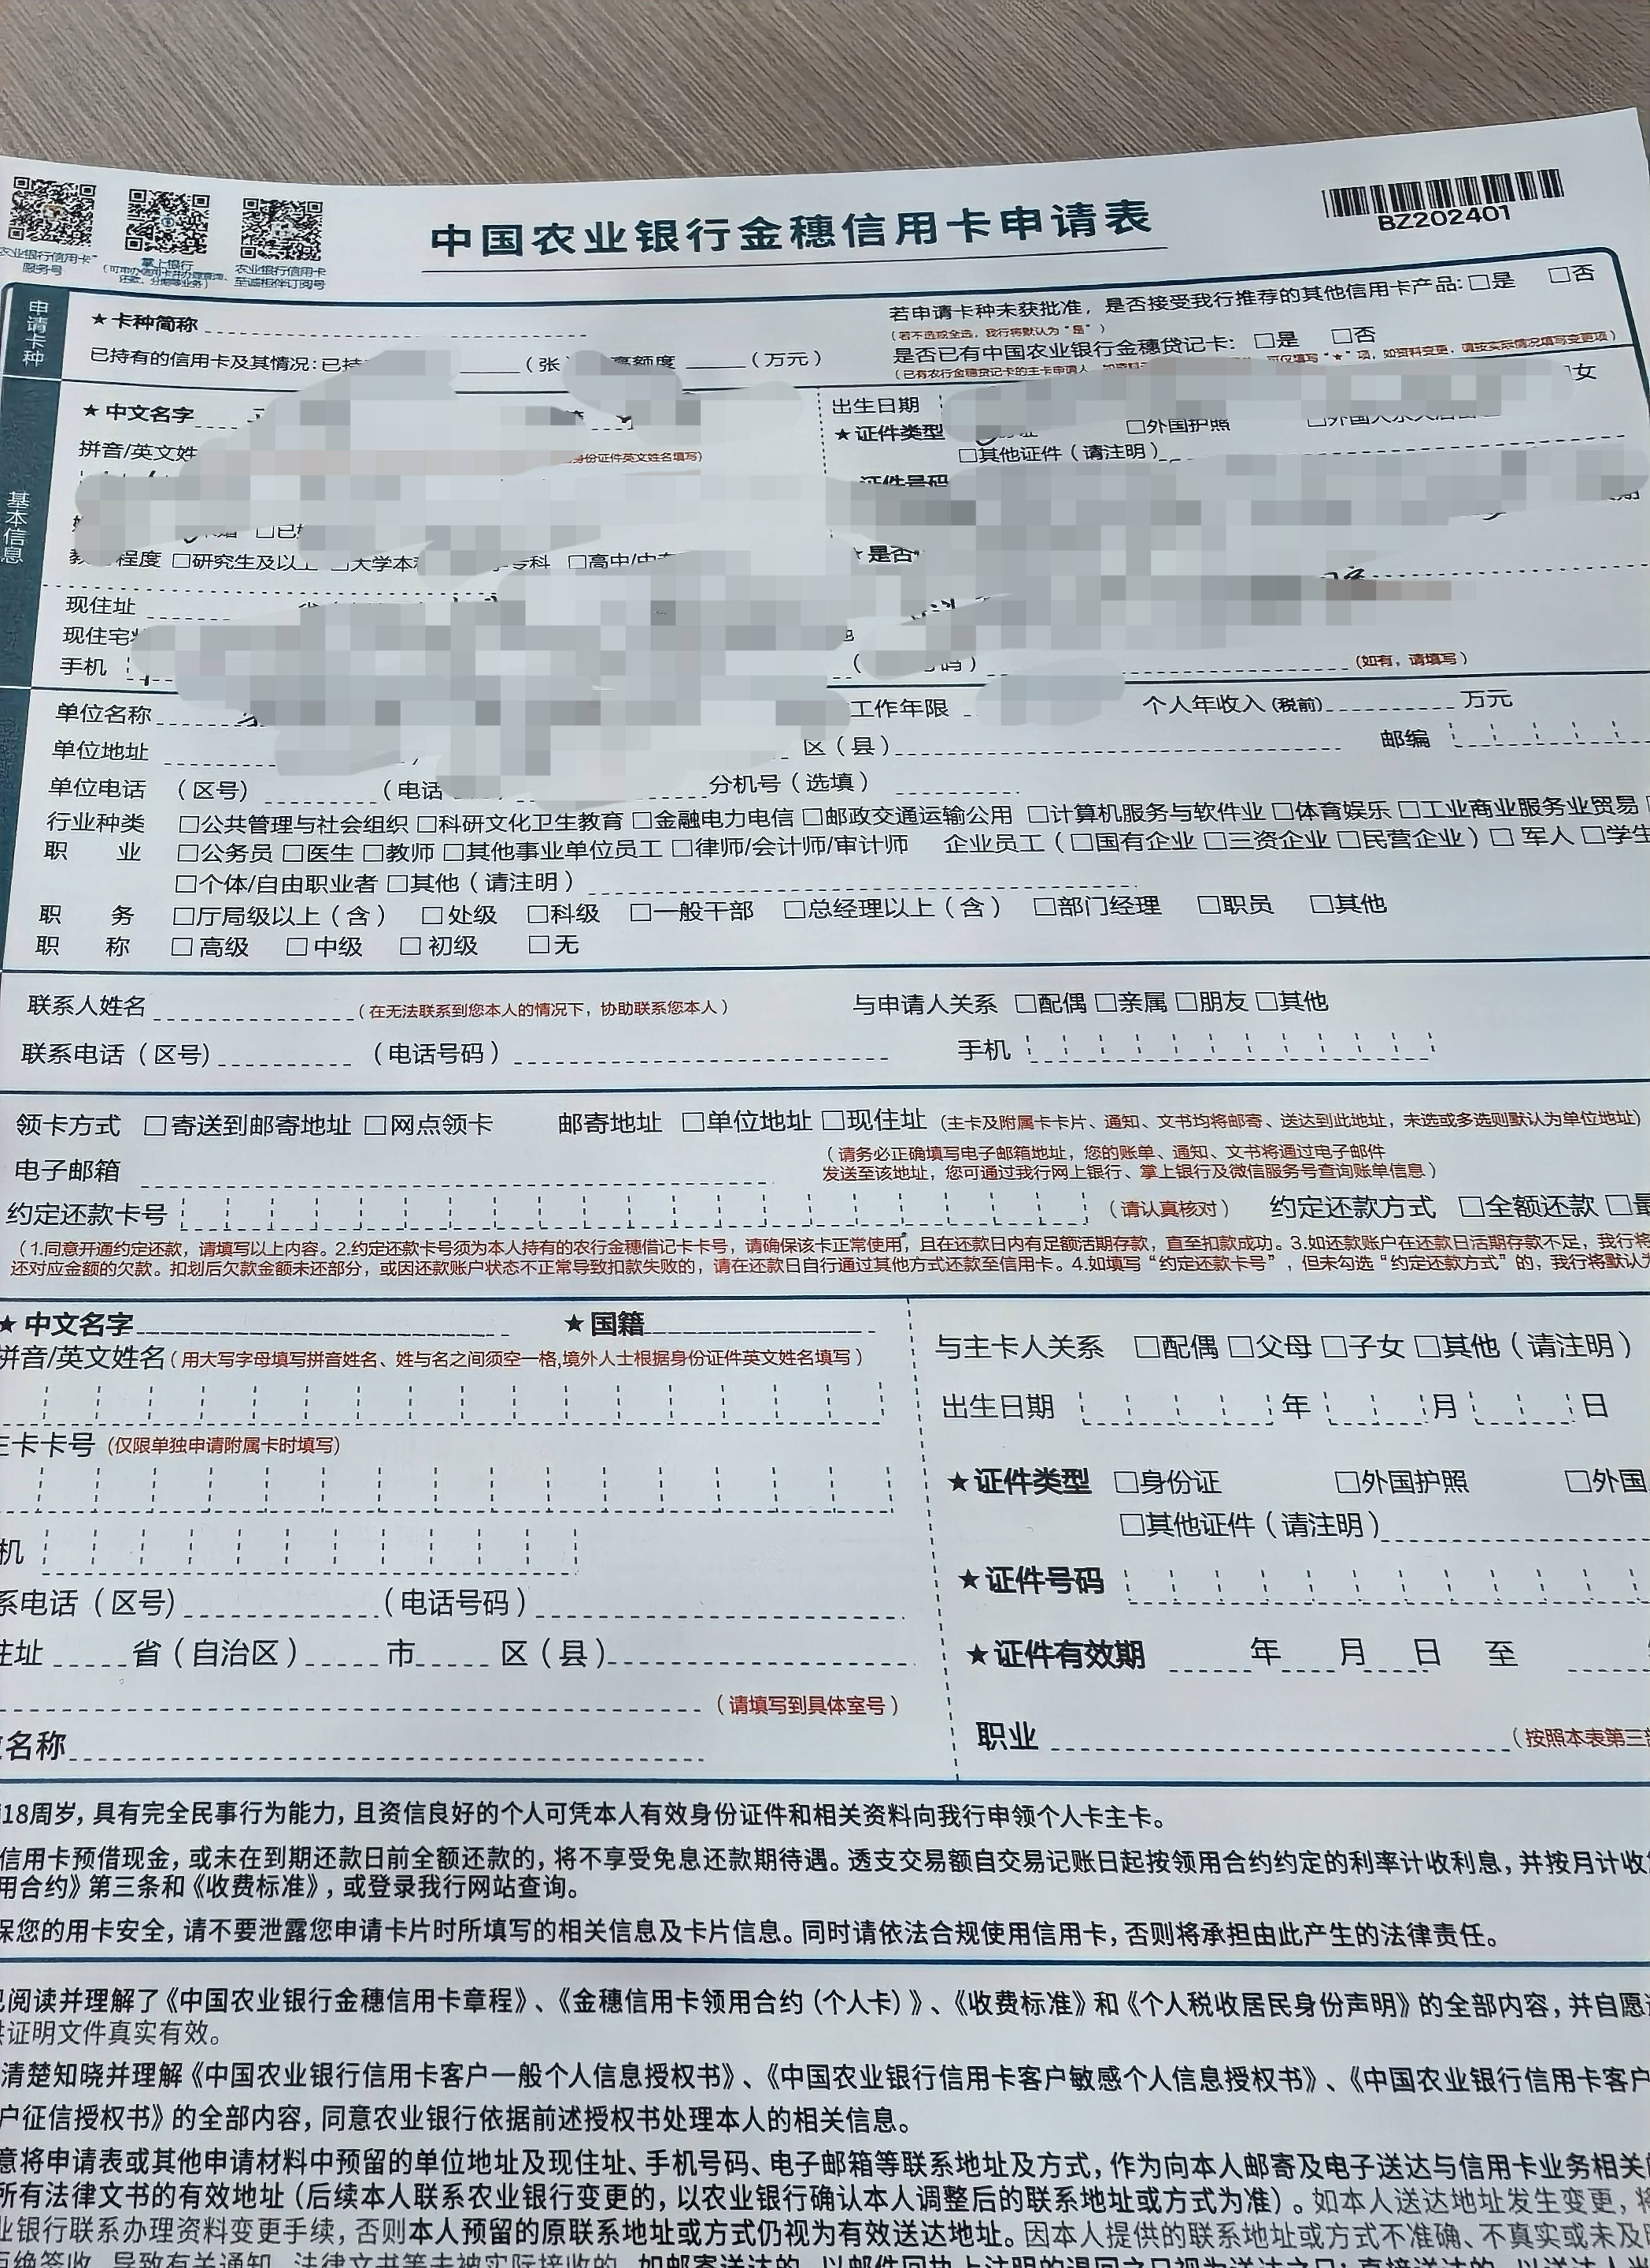 中国农业银行金穗信用卡申请表
BZ202401
农业银行信用卡
服务号
掌上银行
农业银行信用卡
至诚相伴订阅号
申请卡种
★卡种简称
若申请卡种未获批准，是否接受我行推荐的其他信用卡产品：□是 □否
（若不选或全选，我行将默认为“是”）
已持有的信用卡及其情况：已持 （张 高额度 （万元）
是否已有中国农业银行金穗贷记卡：□是 □否
基本信息
★中文名字
出生日期
女
★证件类型 □外国护照
□其他证件（请注明）
拼音/英文姓
身份证件英文姓名填写）
证件号码
程度 □研究生及以上 □大学本 专科 □高中/中
★是否
现住址
现住宅
手机
（如有，请填写）
单位名称
工作年限
个人年收入（税前） 万元
单位地址 区（县） 邮编
单位电话 （区号） （电话 分机号（选填）
行业种类 □公共管理与社会组织 □科研文化卫生教育 □金融电力电信 □邮政交通运输公用 □计算机服务与软件业 □体育娱乐 □工业商业服务业贸易
职业 □公务员 □医生 □教师 □其他事业单位员工 □律师/会计师/审计师 企业员工（□国有企业 □三资企业 □民营企业）□军人 □学生
□个体/自由职业者 □其他（请注明）
职务 □厅局级以上（含） □处级 □科级 □一般干部 □总经理以上（含） □部门经理 □职员 □其他
职称 □高级 □中级 □初级 □无
联系人姓名 （在无法联系到您本人的情况下，协助联系您本人） 与申请人关系 □配偶 □亲属 □朋友 □其他
联系电话（区号） （电话号码） 手机
领卡方式 □寄送到邮寄地址 □网点领卡 邮寄地址 □单位地址 □现住址 （主卡及附属卡卡片、通知、文书均将邮寄、送达到此地址，未选或多选则默认为单位地址）
电子邮箱 （请务必正确填写电子邮箱地址，您的账单、通知、文书将通过电子邮件
发送至该地址，您可通过我行网上银行、掌上银行及微信服务号查询账单信息）
约定还款卡号 （请认真核对） 约定还款方式 □全额还款 □最
（1.同意开通约定还款，请填写以上内容。2.约定还款卡号须为本人持有的农行金穗借记卡卡号，请确保该卡正常使用，且在还款日内有足额活期存款，直至扣款成功。3.如还款账户在还款日活期存款不足，我行将
还对应金额的欠款。扣划后欠款金额未还部分，或因还款账户状态不正常导致扣款失败的，请在还款日自行通过其他方式还款至信用卡。4.如填写“约定还款卡号”，但未勾选“约定还款方式”的，我行将默认为
★中文名字 ★国籍
与主卡人关系 □配偶 □父母 □子女 □其他（请注明）
拼音/英文姓名（用大写字母填写拼音姓名、姓与名之间须空一格,境外人士根据身份证件英文姓名填写）
出生日期 年 月 日
主卡卡号（仅限单独申请附属卡时填写）
★证件类型 □身份证 □外国护照 □外国
□其他证件（请注明）
机
★证件号码
系电话（区号） （电话号码）
住址 省（自治区） 市 区（县）
★证件有效期 年 月 日 至
（请填写到具体室号）
名称
职业 （按照本表第三
18周岁，具有完全民事行为能力，且资信良好的个人可凭本人有效身份证件和相关资料向我行申领个人卡主卡。
信用卡预借现金，或未在到期还款日前全额还款的，将不享受免息还款期待遇。透支交易额自交易记账日起按领用合约约定的利率计收利息，并按月计收
用合约》第三条和《收费标准》，或登录我行网站查询。
保您的用卡安全，请不要泄露您申请卡片时所填写的相关信息及卡片信息。同时请依法合规使用信用卡，否则将承担由此产生的法律责任。
已阅读并理解了《中国农业银行金穗信用卡章程》、《金穗信用卡领用合约（个人卡）》、《收费标准》和《个人税收居民身份声明》的全部内容，并自愿
证明文件真实有效。
清楚知晓并理解《中国农业银行信用卡客户一般个人信息授权书》、《中国农业银行信用卡客户敏感个人信息授权书》、《中国农业银行信用卡客户
户征信授权书》的全部内容，同意农业银行依据前述授权书处理本人的相关信息。
意将申请表或其他申请材料中预留的单位地址及现住址、手机号码、电子邮箱等联系地址及方式，作为向本人邮寄及电子送达与信用卡业务相关
所有法律文书的有效地址（后续本人联系农业银行变更的，以农业银行确认本人调整后的联系地址或方式为准）。如本人送达地址发生变更，将
业银行联系办理资料变更手续，否则本人预留的原联系地址或方式仍视为有效送达地址。因本人提供的联系地址或方式不准确、不真实或未及